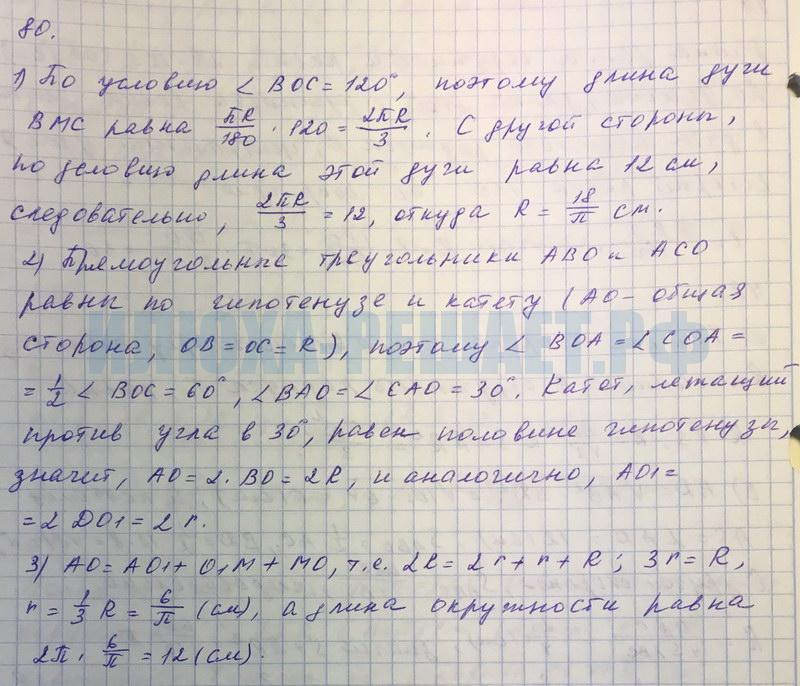 80.
1) По условию ∠ BOC = 120°, поэтому длина дуги
BMC равна πR/180 · 120 = 2πR/3. С другой стороны,
по условию длина этой дуги равна 12 см,
следовательно, 2πR/3 = 12, откуда R = 18/π см.
2) Прямоугольные треугольники ABO и ACO
равны по гипотенузе и катету (AO - общая
сторона, OB = OC = R), поэтому ∠ BOA = ∠ COA =
= 1/2 ∠ BOC = 60°, ∠ BAO = ∠ CAO = 30°. Катет, лежащий
против угла в 30°, равен половине гипотенузы,
значит, AO = 2 · BO = 2R, и аналогично, AO1 =
= 2 DO1 = 2 r.
3) AO = AO1 + O1M + MO, т.е. 2R = 2r + r + R ; 3r = R,
r = 1/3 R = 6/π (см), а длина окружности равна
2π · 6/π = 12 (см).
ИЛЮХА-РЕШАЕТ.РФ